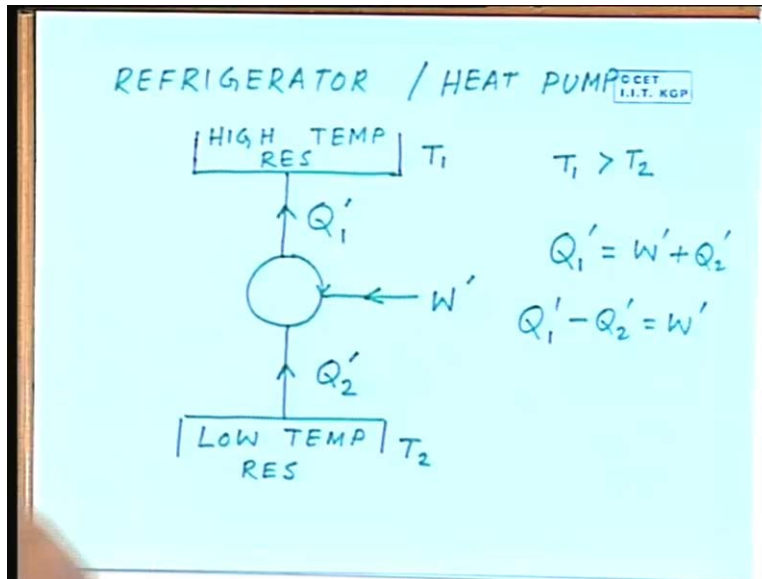 REFRIGERATOR / HEAT PUMP
© CET
I.I.T. KGP
HIGH TEMP
RES
T₁
T₁ > T₂
Q₁′
Q₁′ = W′ + Q₂′
W′
Q₁′ − Q₂′ = W′
Q₂′
LOW TEMP
RES
T₂